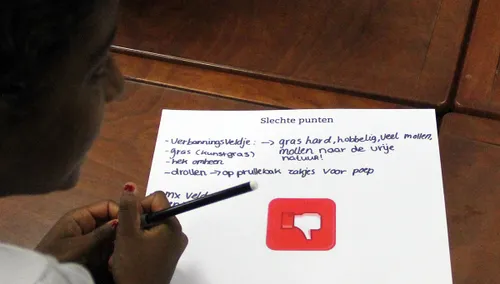 Slechte punten
- Verbanningsveldje: → gras hard, hobbelig, veel mollen,
- gras (kunstgras) mollen naar de vrije
- hek omheen natuur!
- drollen → op prullebak zakjes voor poep
mx Veld